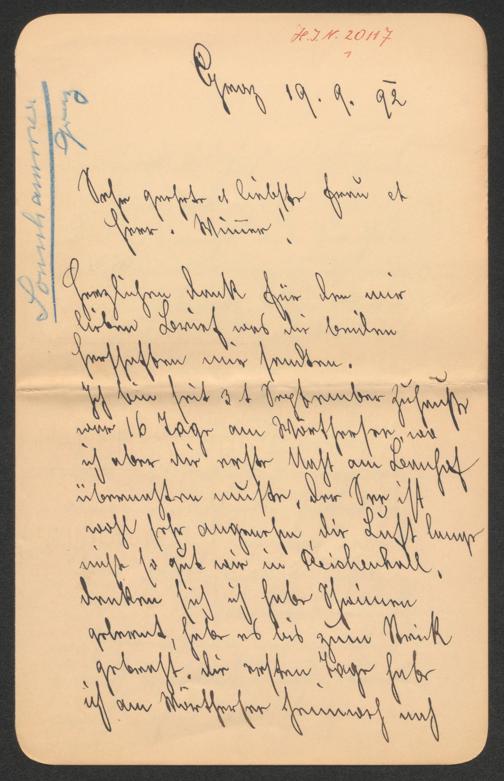 H.I.N. 20117
1
Graz 19. 9. 92
Sonnhammer
Graz
Sehr geehrte et liebste Frau et
Herr. Wimer!
Herzlichen Dank für den mir
lieben Brief was die beiden
Herschaften mir sendten.
Ich bin seit 3 t September zuhause
war 16 Tage am Wörthersee, wo
ich aber die erste Nacht am Banhof
übernachten muste. Der See ist
wohl sehr angenehm, die Luft lange
nicht so gut wie in Reichenhall,
denken sich ich habe Schwimen
gelernt, habe es bis zum Strick
gebracht. Die ersten Tage habe
ich am Wörthersee Heimweh nach